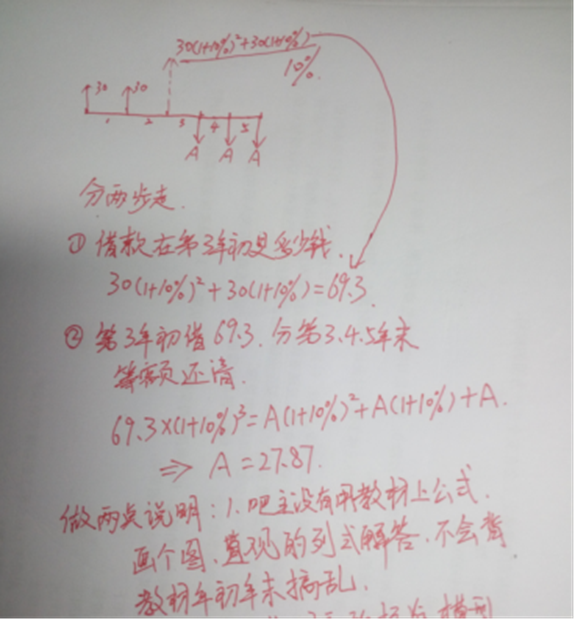 30(1+10%)²+30(1+10%)
10%
30 30
1 2 3 4 5
A A A
分两步走.
① 借款在第3年初是多少钱.
30(1+10%)²+30(1+10%)=69.3
② 第3年初借69.3.分第3.4.5年末
等额还清.
69.3×(1+10%)³=A(1+10%)²+A(1+10%)+A.
⇒ A=27.87.
做两点说明:1.吧主没有用教材上公式.
画个图、直观的列式解答.不会背
教材年初年末搞乱.